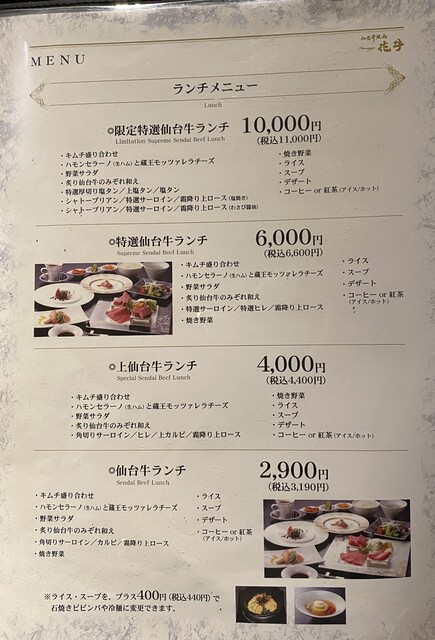 MENU
仙台牛焼肉
花牛
ランチメニュー
Lunch
◎限定特選仙台牛ランチ 10,000円
Limitation Supreme Sendai Beef Lunch (税込11,000円)
・キムチ盛り合わせ
・ハモンセラーノ(生ハム)と蔵王モッツァレラチーズ
・野菜サラダ
・炙り仙台牛のみぞれ和え
・特選厚切り塩タン/上塩タン/塩タン
・シャトーブリアン/特選サーロイン/霜降り上ロース(塩焼き)
・シャトーブリアン/特選サーロイン/霜降り上ロース(わさび醤油)
・焼き野菜
・ライス
・スープ
・デザート
・コーヒー or 紅茶(アイス/ホット)
◎特選仙台牛ランチ 6,000円
Supreme Sendai Beef Lunch (税込6,600円)
・キムチ盛り合わせ
・ハモンセラーノ(生ハム)と蔵王モッツァレラチーズ
・野菜サラダ
・炙り仙台牛のみぞれ和え
・特選サーロイン/特選ヒレ/霜降り上ロース
・焼き野菜
・ライス
・スープ
・デザート
・コーヒー or 紅茶
(アイス/ホット)
◎上仙台牛ランチ 4,000円
Special Sendai Beef Lunch (税込4,400円)
・キムチ盛り合わせ
・ハモンセラーノ(生ハム)と蔵王モッツァレラチーズ
・野菜サラダ
・炙り仙台牛のみぞれ和え
・角切りサーロイン/ヒレ/上カルビ/霜降り上ロース
・焼き野菜
・ライス
・スープ
・デザート
・コーヒー or 紅茶(アイス/ホット)
◎仙台牛ランチ 2,900円
Sendai Beef Lunch (税込3,190円)
・キムチ盛り合わせ
・ハモンセラーノ(生ハム)と蔵王モッツァレラチーズ
・野菜サラダ
・炙り仙台牛のみぞれ和え
・角切りサーロイン/カルビ/霜降り上ロース
・焼き野菜
・ライス
・スープ
・デザート
・コーヒー or 紅茶
(アイス/ホット)
※ライス・スープを、プラス400円(税込440円)で
石焼きビビンバや冷麺に変更できます。